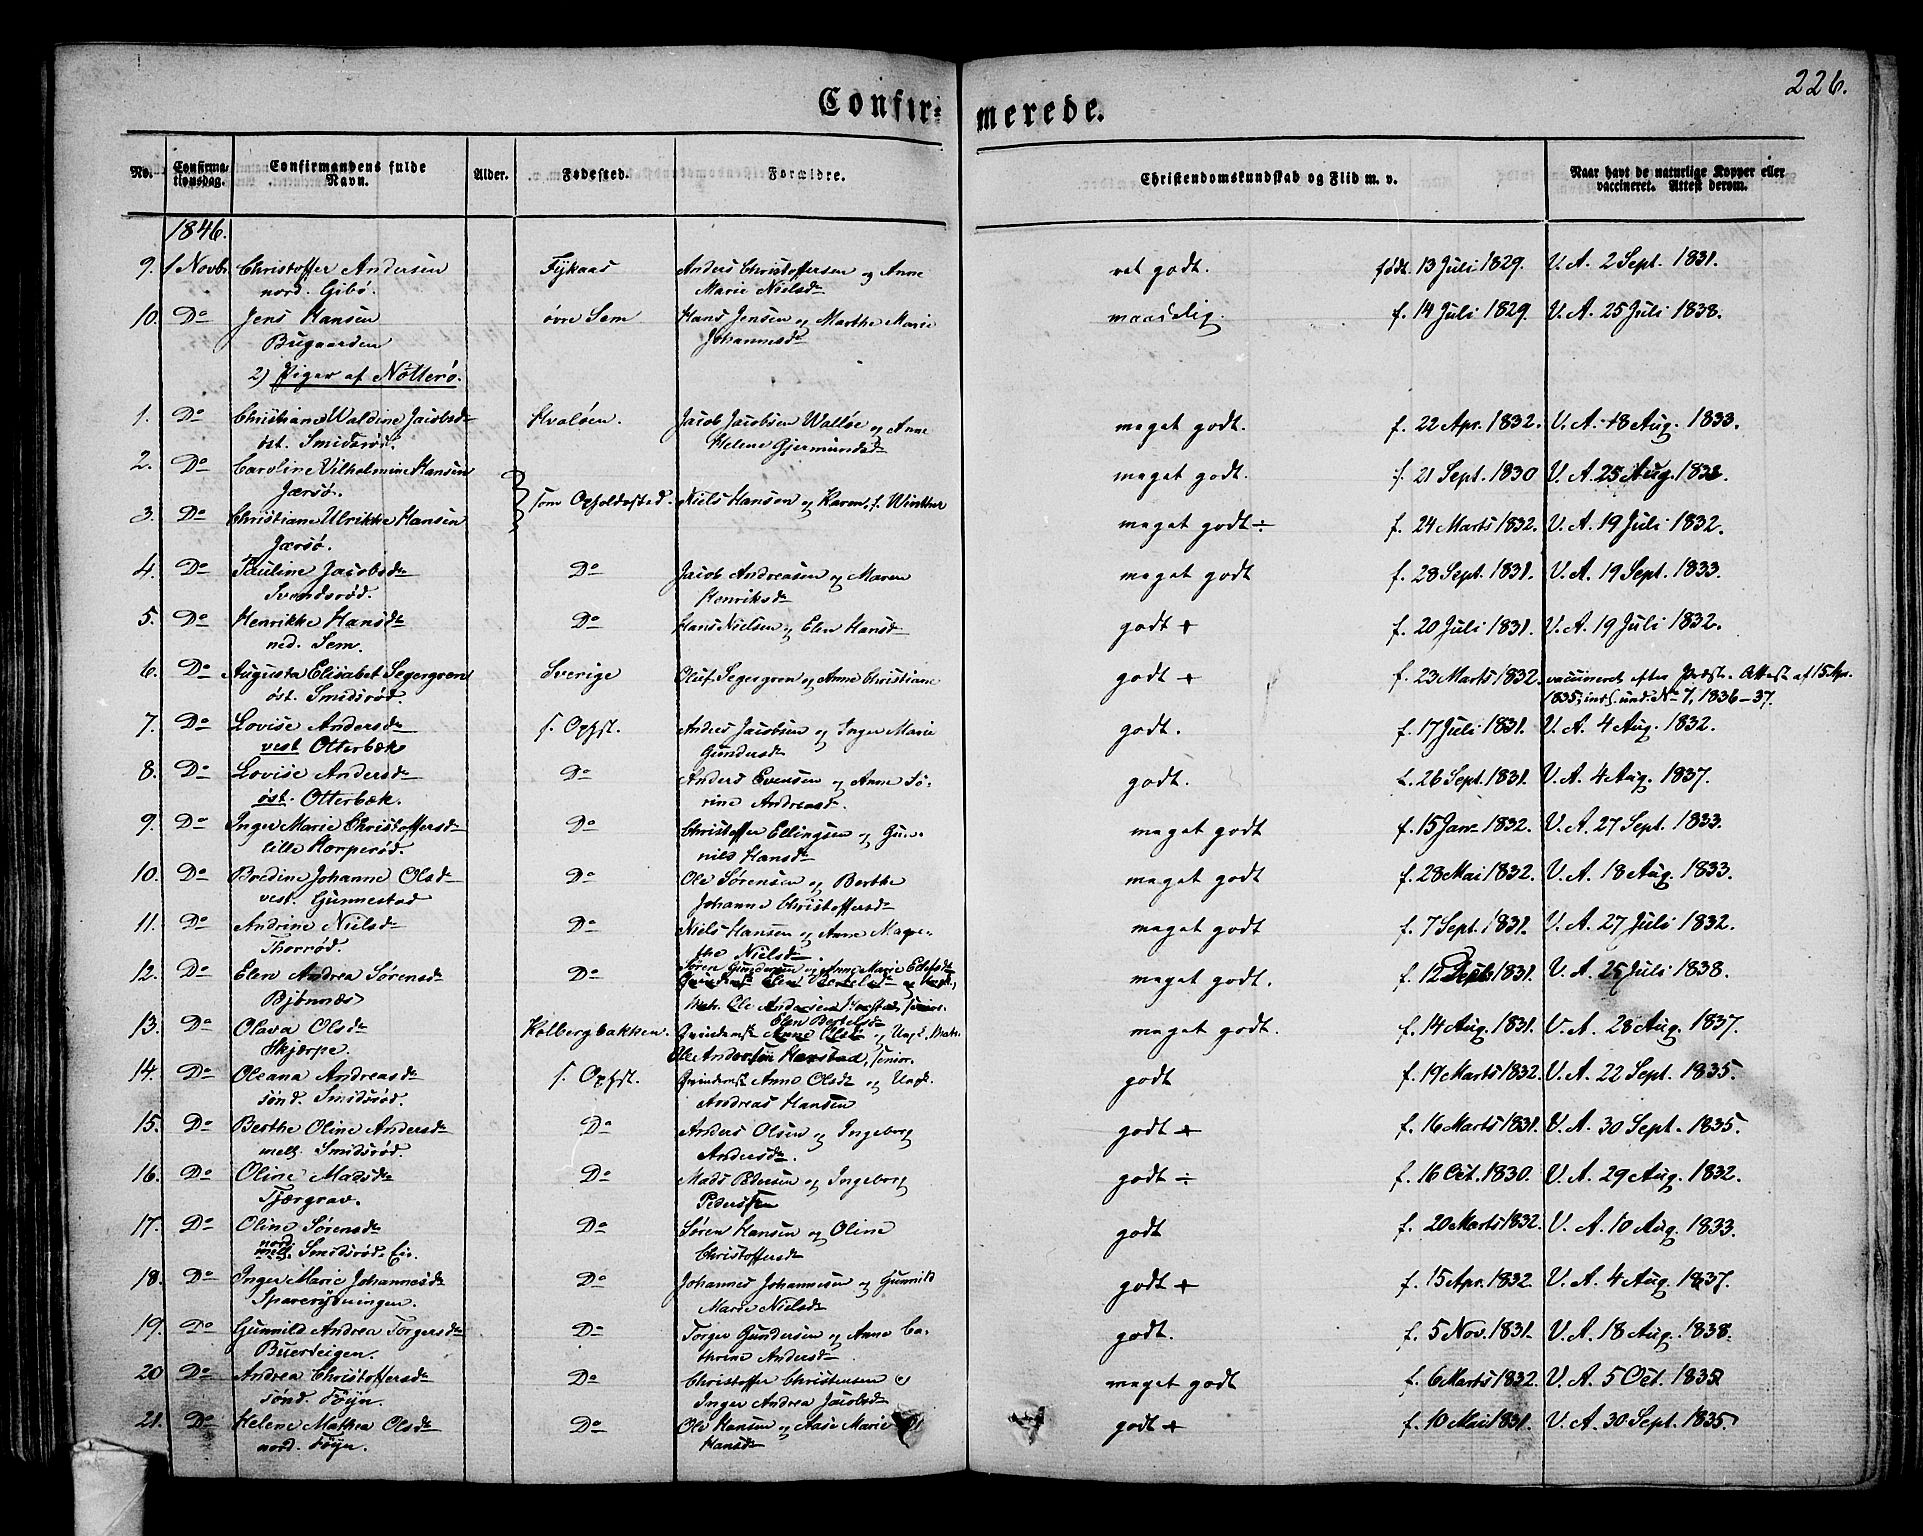 226.
Confir- merede.
No. Confirma-tionsdag. Confirmandens fulde Navn. Alder. Fødested. Forældre. Christendomskundskab og Flid m. v. Naar havt de naturlige Kopper eller vaccineret. Attest derom.
1846.
9. 1 Novbr Christoffer Andersen Fyksaas Anders Christoffersen og Anne vel godt. født. 13 Juli 1829. V. A. 2 Sept. 1831.
nord. Gibø. Marie Nielsdr
10. Do Jens Hansen øvre Sem Hans Jensen og Marthe Marie maadelig. f. 14 Juli 1829. V. A. 25 Juli 1838.
Bugaarden Johannesdr
2) Piger af Nøtterø.
1. Do Christiane Waldine Jacobsdr Hvaløen. Jacob Jacobsen Walløe og Anne meget godt. f. 22 Apr. 1832. V. A. 18 Aug. 1833.
øst. Smidsrød. Helene Gjermundsdr
2. Do Caroline Vilhelmine Hansen meget godt. f. 21 Sept. 1830 V. A. 25 Aug. 1832.
Jærsø. som Opholdssted. Niels Hansen og Karen, f. Winther
3. Do Christiane Ulrikke Hansen meget godt ÷ f. 24 Marts 1832. V. A. 19 Juli 1832.
Jærsø.
4. Do Pauline Jacobsdr Do Jacob Andreasen og Maren meget godt f. 28 Sept. 1831. V. A. 19 Sept. 1833.
Svendsrød. Henriksdr
5. Do Henrikke Hansdr Do Hans Nielsen og Elen Hansdr godt + f. 20 Juli 1831. V. A. 19 Juli 1832.
ned. Sem.
6. Do Augusta Elisabet Segergren Sverige Oluf Segergren og Anne Christiane godt + f. 23 Marts 1832. vaccineret efter Præste-Attest af 15 Apr.
øst. Smidsrød. 1835, inds. und. No 7, 1836-37.
7. Do Lovise Andersdr s. Ophst. Anders Jacobsen og Inger Marie godt. f. 17 Juli 1831. V. A. 4 Aug. 1832.
vest Otterbæk Gundersdr
8. Do Lovise Andersdr Do Anders Evensen og Anne Sø- godt. f. 26 Sept. 1831. V. A. 4 Aug. 1837.
øst. Otterbæk. rine Andreasdr.
9. Do Inger Marie Christoffersdr Do Christoffer Ellingsen og Gun- meget godt f. 15 Janr 1832. V. A. 27 Sept. 1833.
lille Horperød. nild Hansdr
10. Do Bredine Johanne Olsdr Do Ole Sørensen og Berthe meget godt f. 28 Mai 1832. V. A. 18 Aug. 1833.
vest. Gunnestad Johanne Christoffersdr
11. Do Andrine Nielsdr Do Niels Hansen og Anne Magre- meget godt f. 7 Sept. 1831. V. A. 27 Juli 1832.
Thorrød. the Nielsdr.
12. Do Elen Andrea Sørensdr Do Søren Gundersen og Anne Marie Ellefsdr meget godt. f. 12 1831. V. A. 25 Juli 1838.
Bjønnæs Elen Bertelsdr Ole Andersen senior.
13. Do Olava Olsdr Holbergbakken. Elen Bertelsdr og Ungk. Matr. meget godt. f. 14 Aug. 1831. V. A. 28 Aug. 1837.
Skjærpe. Ole Andersen Harstad, senior.
14. Do Oleana Andreasdr s. Ophst. Qvindemst Anne Olsdr og Ungk. godt f. 19 Marts 1832. V. A. 22 Sept. 1835.
sønd. Smidsrød. Andreas Hansen
15. Do Berthe Oline Andersdr Do Anders Olsen og Ingeborg godt + f. 16 Marts 1831. V. A. 30 Sept. 1835.
mell. Smidsrød. Andersdr.
16. Do Oline Madsdr Do Mads Pedersen og Ingeborg godt ÷ f. 16 Oct. 1830. V. A. 29 Aug. 1832.
Fjærgrav. Pedersen
17. Do Oline Sørensdr Do Søren Hansen og Oline godt f. 20 Marts 1832. V. A. 10 Aug. 1833.
nord. mell. Smidsrød-Eie. Christoffersdr
18. Do Inger Marie Johannesdr Do Johannes Johannesen og Gunnild godt + f. 15 Apr. 1832. V. A. 4 Aug. 1837.
Sparerydningen. Marie Nielsdr
19. Do Gunnild Andrea Torgersdr Do Torger Gundersen og Anne Ca- godt. f. 5 Nov. 1831. V. A. 18 Aug. 1838.
Buerteigen. thrine Andersdr.
20 Do Andrea Christoffersdr Do Christoffer Christensen & meget godt f. 6 Marts 1832. V. A. 5 Oct. 1835
sønd. Føyn. Inger Andrea Jacobsdr
21. Do Helene Mathea Olsdr Do Ole Hansen og Aase Marie godt + f. 10 Mai 1831. V. A. 30 Sept. 1835
nord. Føyn. Hansdr